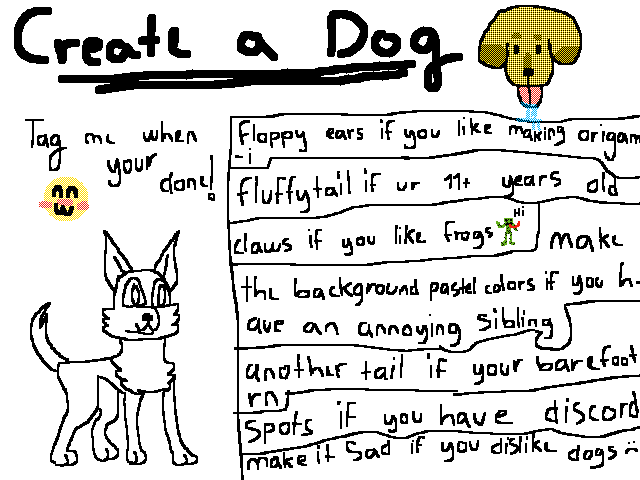 Create a Dog
Tag me when
your
done!
nn
w
Floppy ears if you like making origam
-i
fluffytail if ur 11+ years old
claws if you like frogs
Hi
make
the background pastel colors if you h-
ave an annoying sibling
another tail if your barefoot
rn
Spots if you have discord
make it Sad if you dislike dogs :(